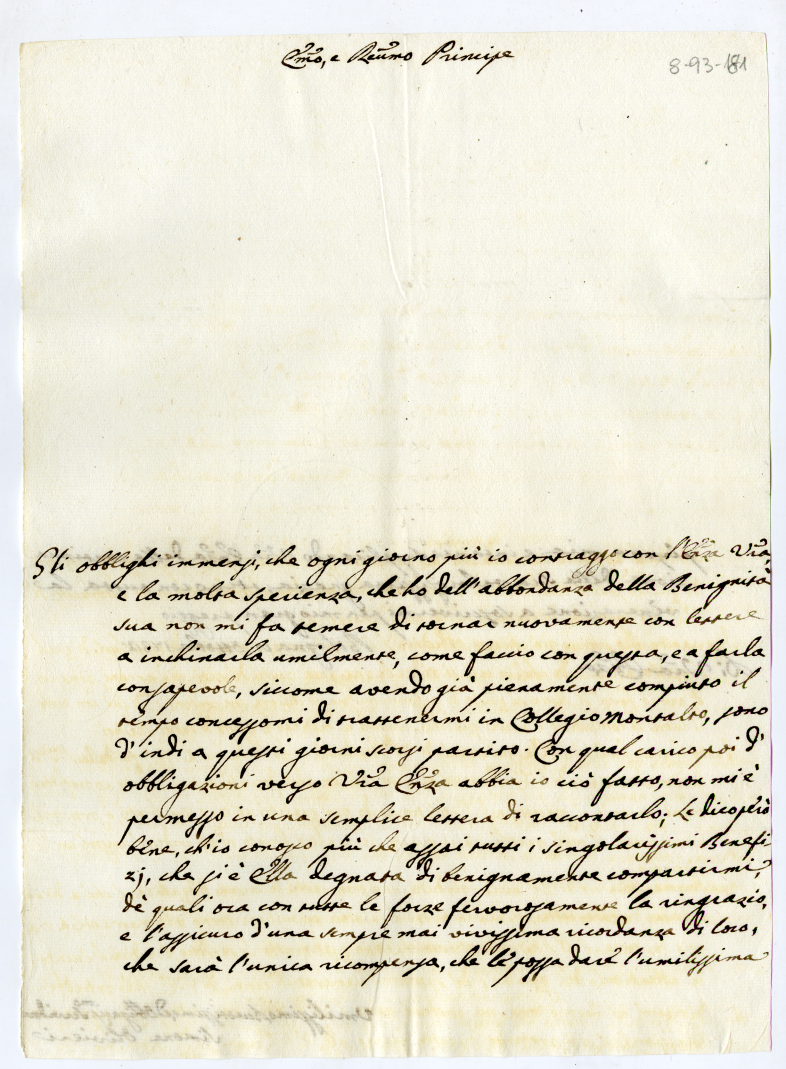 Emo, e Reumo Principe
8-93-181
Gli obblighi immensi, che ogni giorno più io contraggo con l'Enza Vra,
e la molta sperienza, che ho dell'abbondanza della Benignità
sua non mi fa temere di tornar nuovamente con lettere
a inchinarla umilmente, come faccio con questa, e a farla
consapevole, siccome avendo già pienamente compiuto il
tempo concessomi di trattenermi in Collegio Montalto, sono
d'indi a questi giorni scorsi partito. Con qual carico poi d'
obbligazioni verso Vra Enza abbia io ciò fatto, non mi è
permesso in una semplice lettera di raccontarlo; Le dico però
bene, ch'io conosco più che assai tutti i singolarissimi Benefi-
zj, che si è Ella degnata di benignamente compartirmi,
dè quali ora con tutte le forze fervorosamente la ringrazio,
e l'assicuro d'una sempre mai vivissima ricordanza di loro,
che sarà l'unica ricompensa, che le possa dare l'umilissima